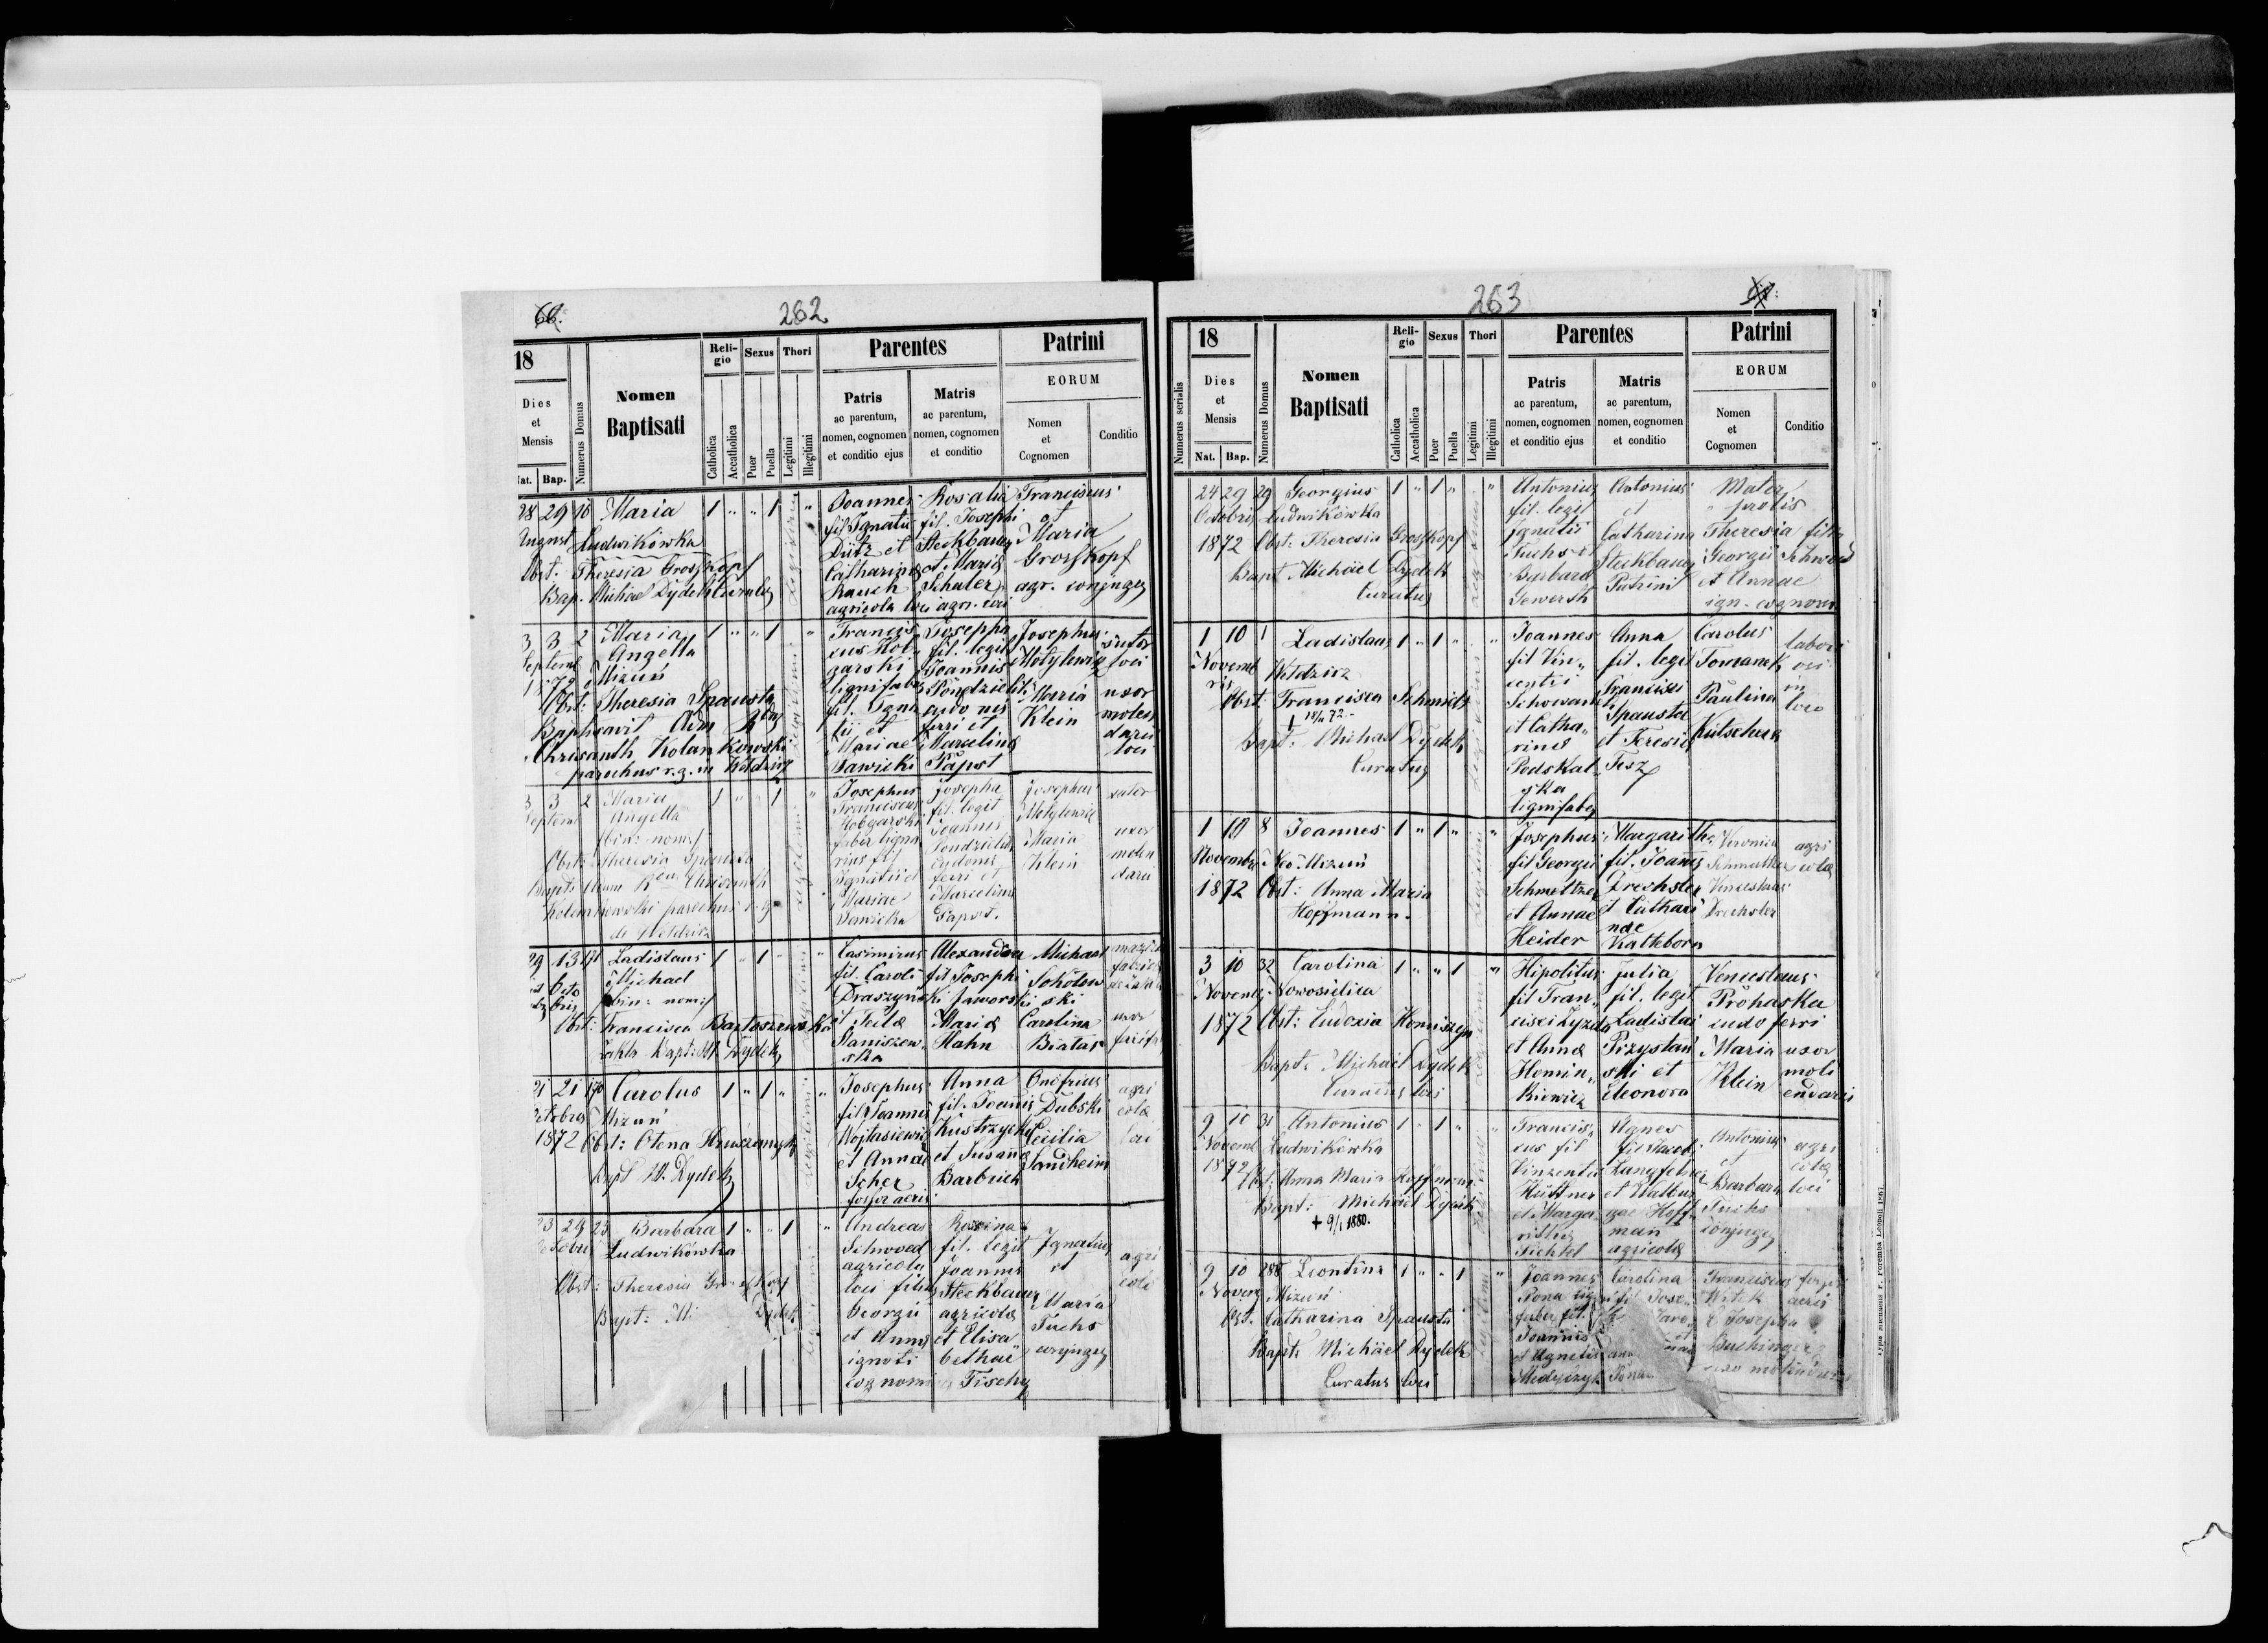 262
18
Dies
et
Mensis
Nat. Bap.
Numerus Domus
Nomen
Baptisati
Reli-
gio
Catholica
Accatholica
Sexus
Puer
Puella
Thori
Legitimi
Illegitimi
Parentes
Patris
ac parentum,
nomen, cognomen
et conditio ejus
Matris
ac parentum,
nomen, cognomen
et conditio
Patrini
EORUM
Nomen
et
Cognomen
Conditio
28 29 16 Maria 1 " " 1 "
August Ludwikówka
Obst. Theresia Grosskopf
Bap. Michael Dydek Curatus
Joannes
fil Ignatii
Dütz et
Catharina
Rauch
agricola loci
Rosalia
fil. Josephi
Steckbauer
et Maria
Schaler
agr. loci
Franciscus
et
Maria
Grosskopf
agr. conjuges
3 3 2 Maria 1 " " 1 "
Septemb Angella
1872 Mizuń
Obst: Theresia Spausta
Baptisavit Adm Rdus
Chrisanth Kolankowski
parochus r.g. in Wełdzirz
Francis
cus Hob
garski
lignifaber
fil. Igna
tii et
Mariae
Sawicki
Josepha
fil. legit
Joannis
Pondzielik
cudo nis
ferri et
Marcelina
Papst
Josephus
Motylewicz
Maria
Klein
sutor
loci
uxor
molen
darii
loci
3 3 2 Maria 1 " " 1 "
Septemb Angella
(bin: nom:)
Obst: Theresia Spausta
Bapt: Adm Rdus Chrisanth
Kolankowski parochus r. g.
de Wełdzirz
Josephus
Franciscus
Hobgarski
faber ligna
rius fil
Ignatii et
Mariae
Sawicka
Josepha
fil. legit
Joannis
Pondzielik
cudonis
ferri et
Marcelina
Papst.
Josephus
Motylewicz
Maria
Klein
sutor
uxor
molen
darii
29 13 171 Ladislaus 1 " 1 " "
Octo Michael
bris (bin: nom:)
Obst: Francisca Bartoszewska
Bapt: M. Dydek
Casimirus
fil. Caroli
Draszyński
et Tecla
Staniszew
ska
Alexandra
fil Josephi
Jaworski
Maria
Hahn
Michael
Sokołow
ski
Carolina
Białas
uxor
21 21 170 Carolus 1 " 1 " "
Octobris Mizuń
1872 Obst: Olena Hruszczanyk
Bapt M. Dydek
Josephus
fil Joannis
Wojtasiewicz
et Annae
Scher
fossor aeris
Anna
fil. Joannis
Kustrzycki
et Susanna
Barbrich
Onofrius
Dubski
Cecilia
Sandheim
agri
colae
loci
23 29 23 Barbara 1 " " 1 "
Octobris Ludwikówka
Obst: Theresia Grosskopf
Bapt: M. Dydek
Andreas
Schwoed
agricola
loci filius
Georgii
et Anna
ignoti
cognominis
Rosina
fil. legit
Joannis
Steckbauer
agricola
et Elisa
bethae
Tischy
Ignatius
et
Maria
Fuchs
conjuges
agri
colae
263
18
Numerus serialis
Dies
et
Mensis
Nat. Bap.
Numerus Domus
Nomen
Baptisati
Reli-
gio
Catholica
Accatholica
Sexus
Puer
Puella
Thori
Legitimi
Illegitimi
Parentes
Patris
ac parentum,
nomen, cognomen
et conditio ejus
Matris
ac parentum,
nomen, cognomen
et conditio
Patrini
EORUM
Nomen
et
Cognomen
Conditio
24 29 29 Georgius 1 " 1 " "
Octobris Ludwikówka
1872 Obst: Theresia Grosskopf
Bapt Michael Dydek
Curatus
Antonius
fil. legit
Ignatii
Fuchs et
Barbara
Gewerth
Antonius
et
Catharina
Steckbauer
Patrini
Mater
prolis
Theresia filia
Georgii Schwoed
et Annae
ign. cognom
1 10 1 Ladislaus 1 " 1 " "
Novemb Wełdzirz
ris
Obst: Francisca Schmidt
† 18/11 72.
Bapt: Michael Dydek
Curatus
Joannes
fil Vin
centii
Schowanek
et Catha
rina
Podskal
ska
lignifaber
Anna
fil. legit
Francisci
Spausta
et Teresia
Tesz
Carolus
Tomanek
Paulina
Kutschera
labori
osi
in
loco
1 10 8 Joannes 1 " 1 " "
Novembr Neo Mizuń
1872 Obst: Anna Maria
Hoffmann.
Josephus
fil Georgii
Schmeltzer
et Annae
Heider
Margaritha
fil. Joannis
Drechsler
et Cathari
nae
Katteborn
Veronica
Venceslaus
Drechsler
agri
colae
3 10 32 Carolina 1 " " 1 "
Novemb Nowosielica
1872 Obst: Eudoxia Homiszyn
Bapt: Michael Dydek
Curatus loci
Hipolitus
fil Fran
cisci Zyzda
et Anna
Homin
kiewicz
Julia
fil. legit
Ladislai
Przystań
ski et
Eleonora
Venceslaus
Prohaska
cudo ferri
Maria uxor
Klein moli
endarii
9 10 31 Antonius 1 " 1 " "
Novemb Ludwikówka
1872 Obst: Anna Maria Hoffman
Bapt: Michael Dydek
+ 9/1 1880.
Francis
cus fil
Vinzentii
Hüttner
et Marga
ritha
Fichtel
Agnes
fil Jacob
Langfelner
et Walbur
gae Hoff
man
agricola
Antonius
et
Barbara
Fuchs
conjuges
agri
colae
loci
9 10 288 Leontina 1 " " 1 "
Novemb Mizuń
Obst. Catharina Spausta
Bapt: Michael Dydek
Curatus loci
Joannes
Rona
faber fil.
Joannis
et Agnetis
Medyczyk
Carolina
fil Jose
Franciscus
Witek
et Josepha
Buchinger
fossor
aeris